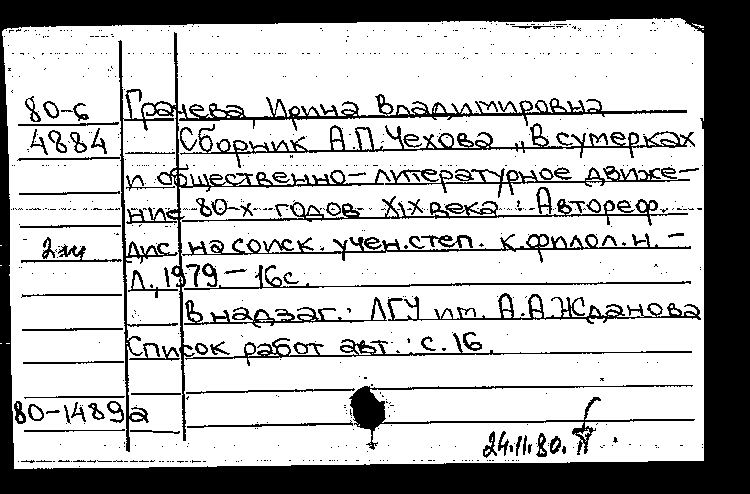 80-6 Грачева, Ирина Владимировна
4884 Сборник А.П. Чехова „В сумерках"
и общественно-литературное движе-
ние 80-х годов XIX века : Автореф.
дис на соиск. учен. степ. к. филол. н. -
Л., 1979 - 16с.
В надзаг.: ЛГУ им. А.А. Жданова
Список работ авт.: с. 16.
80-1489а
24.11.80.